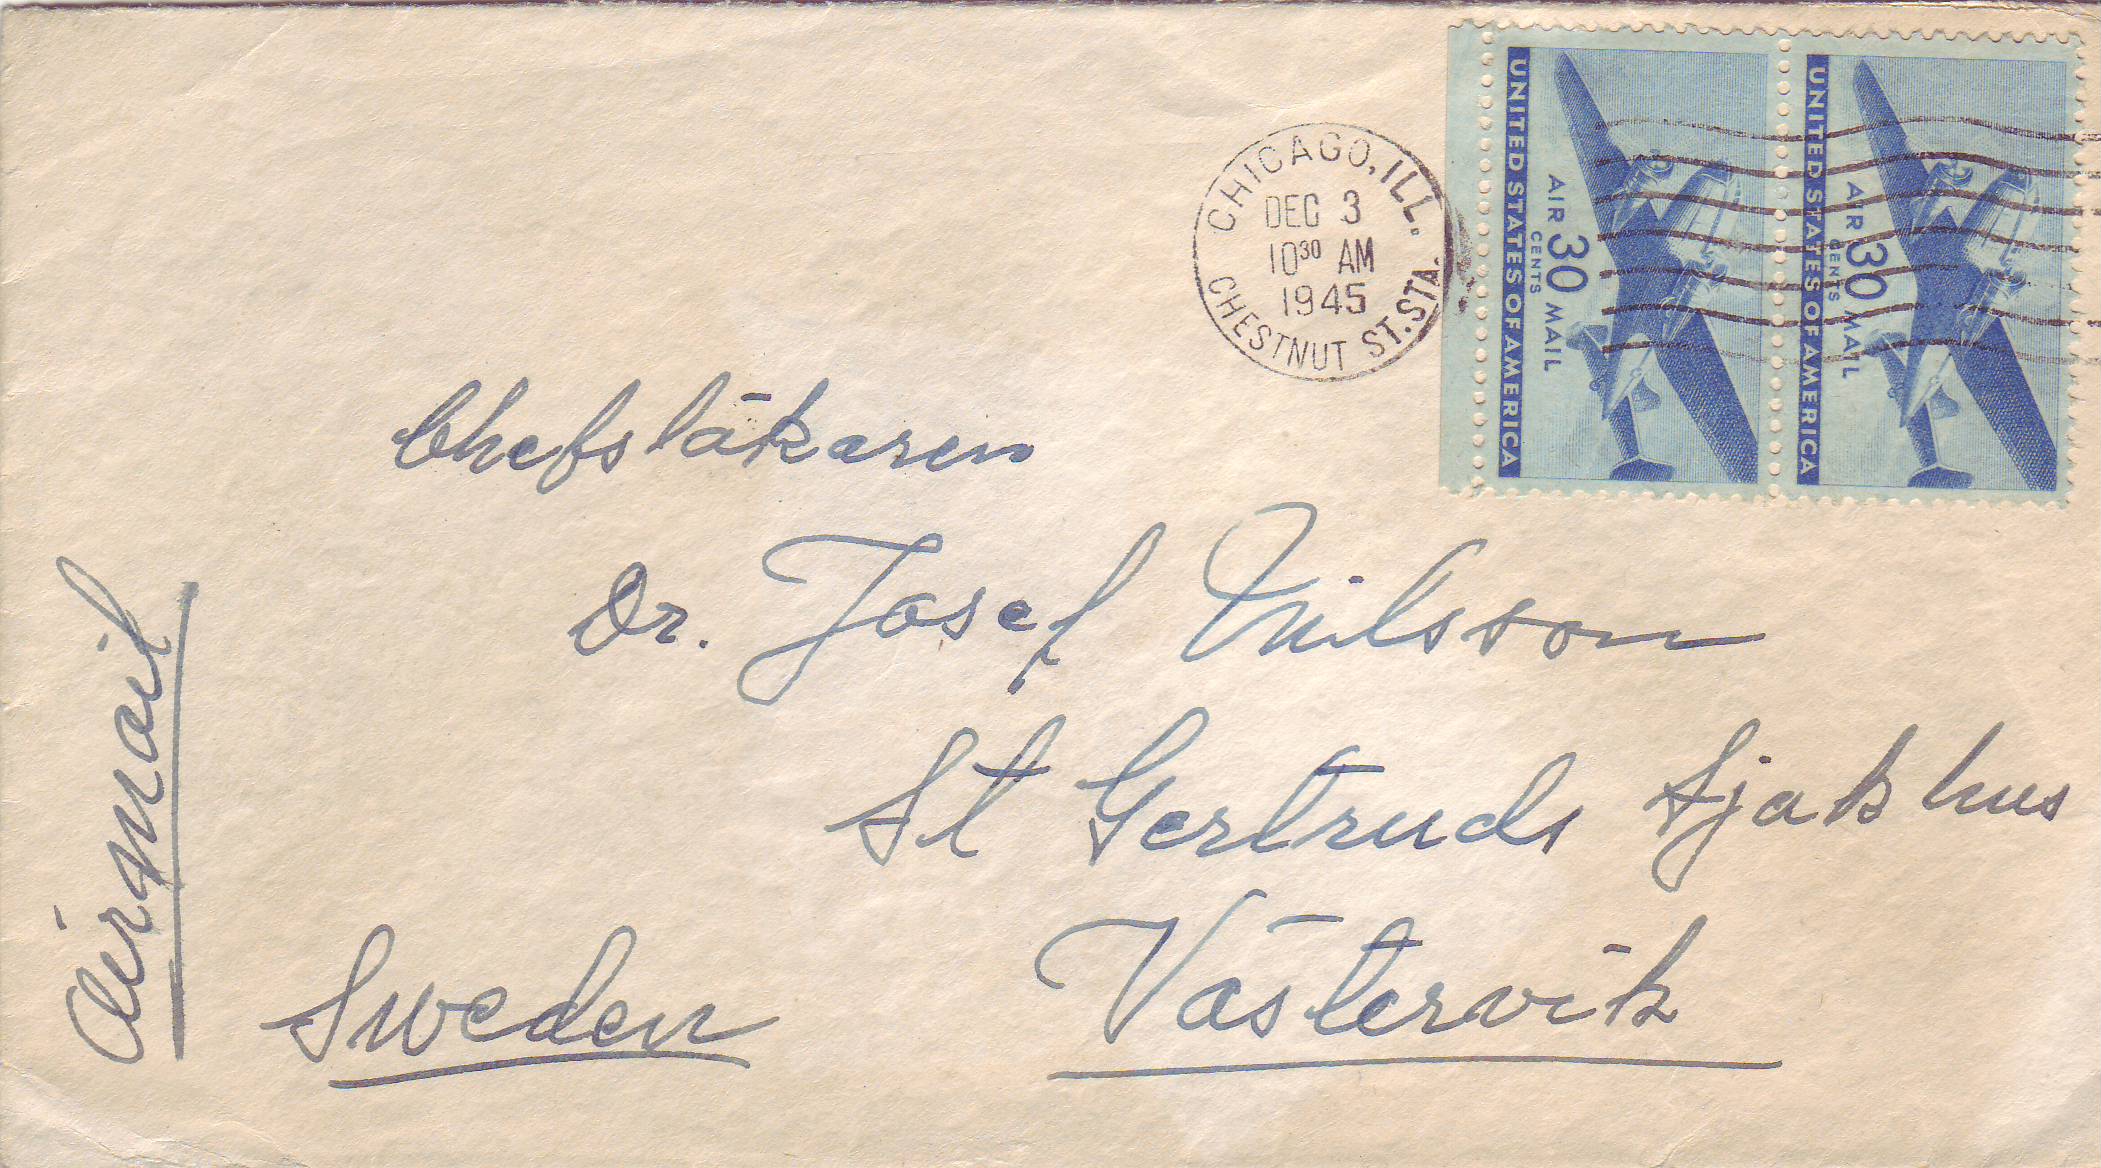 CHICAGO, ILL.
DEC 3
10³⁰ AM
1945
CHESTNUT ST. STA.
UNITED STATES OF AMERICA
AIR 30 MAIL
CENTS
UNITED STATES OF AMERICA
AIR 30 MAIL
CENTS
Chefsläkaren
Dr. Josef Nilsson
St Gertruds Sjakhus
Västervik
Sweden
Airmail